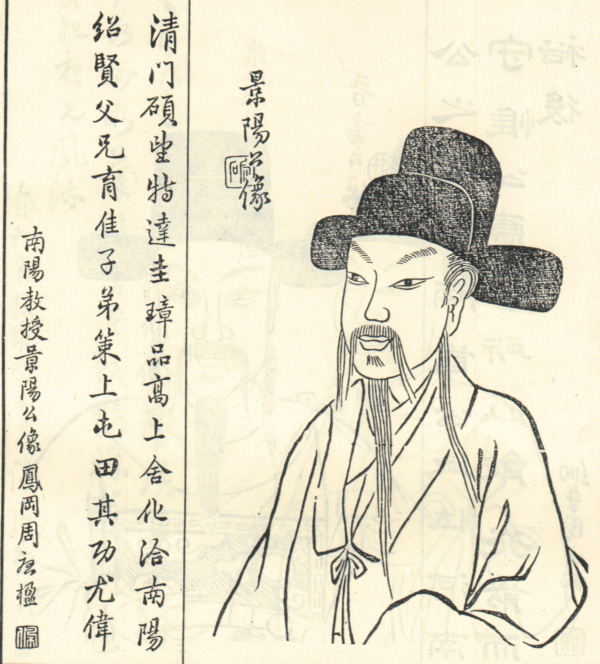 景陽公像
清門碩望特達圭璋品高上舍化洽南陽
紹賢父兄育佳子弟策上屯田其功尤偉
南陽教授景陽公像鳳岡周